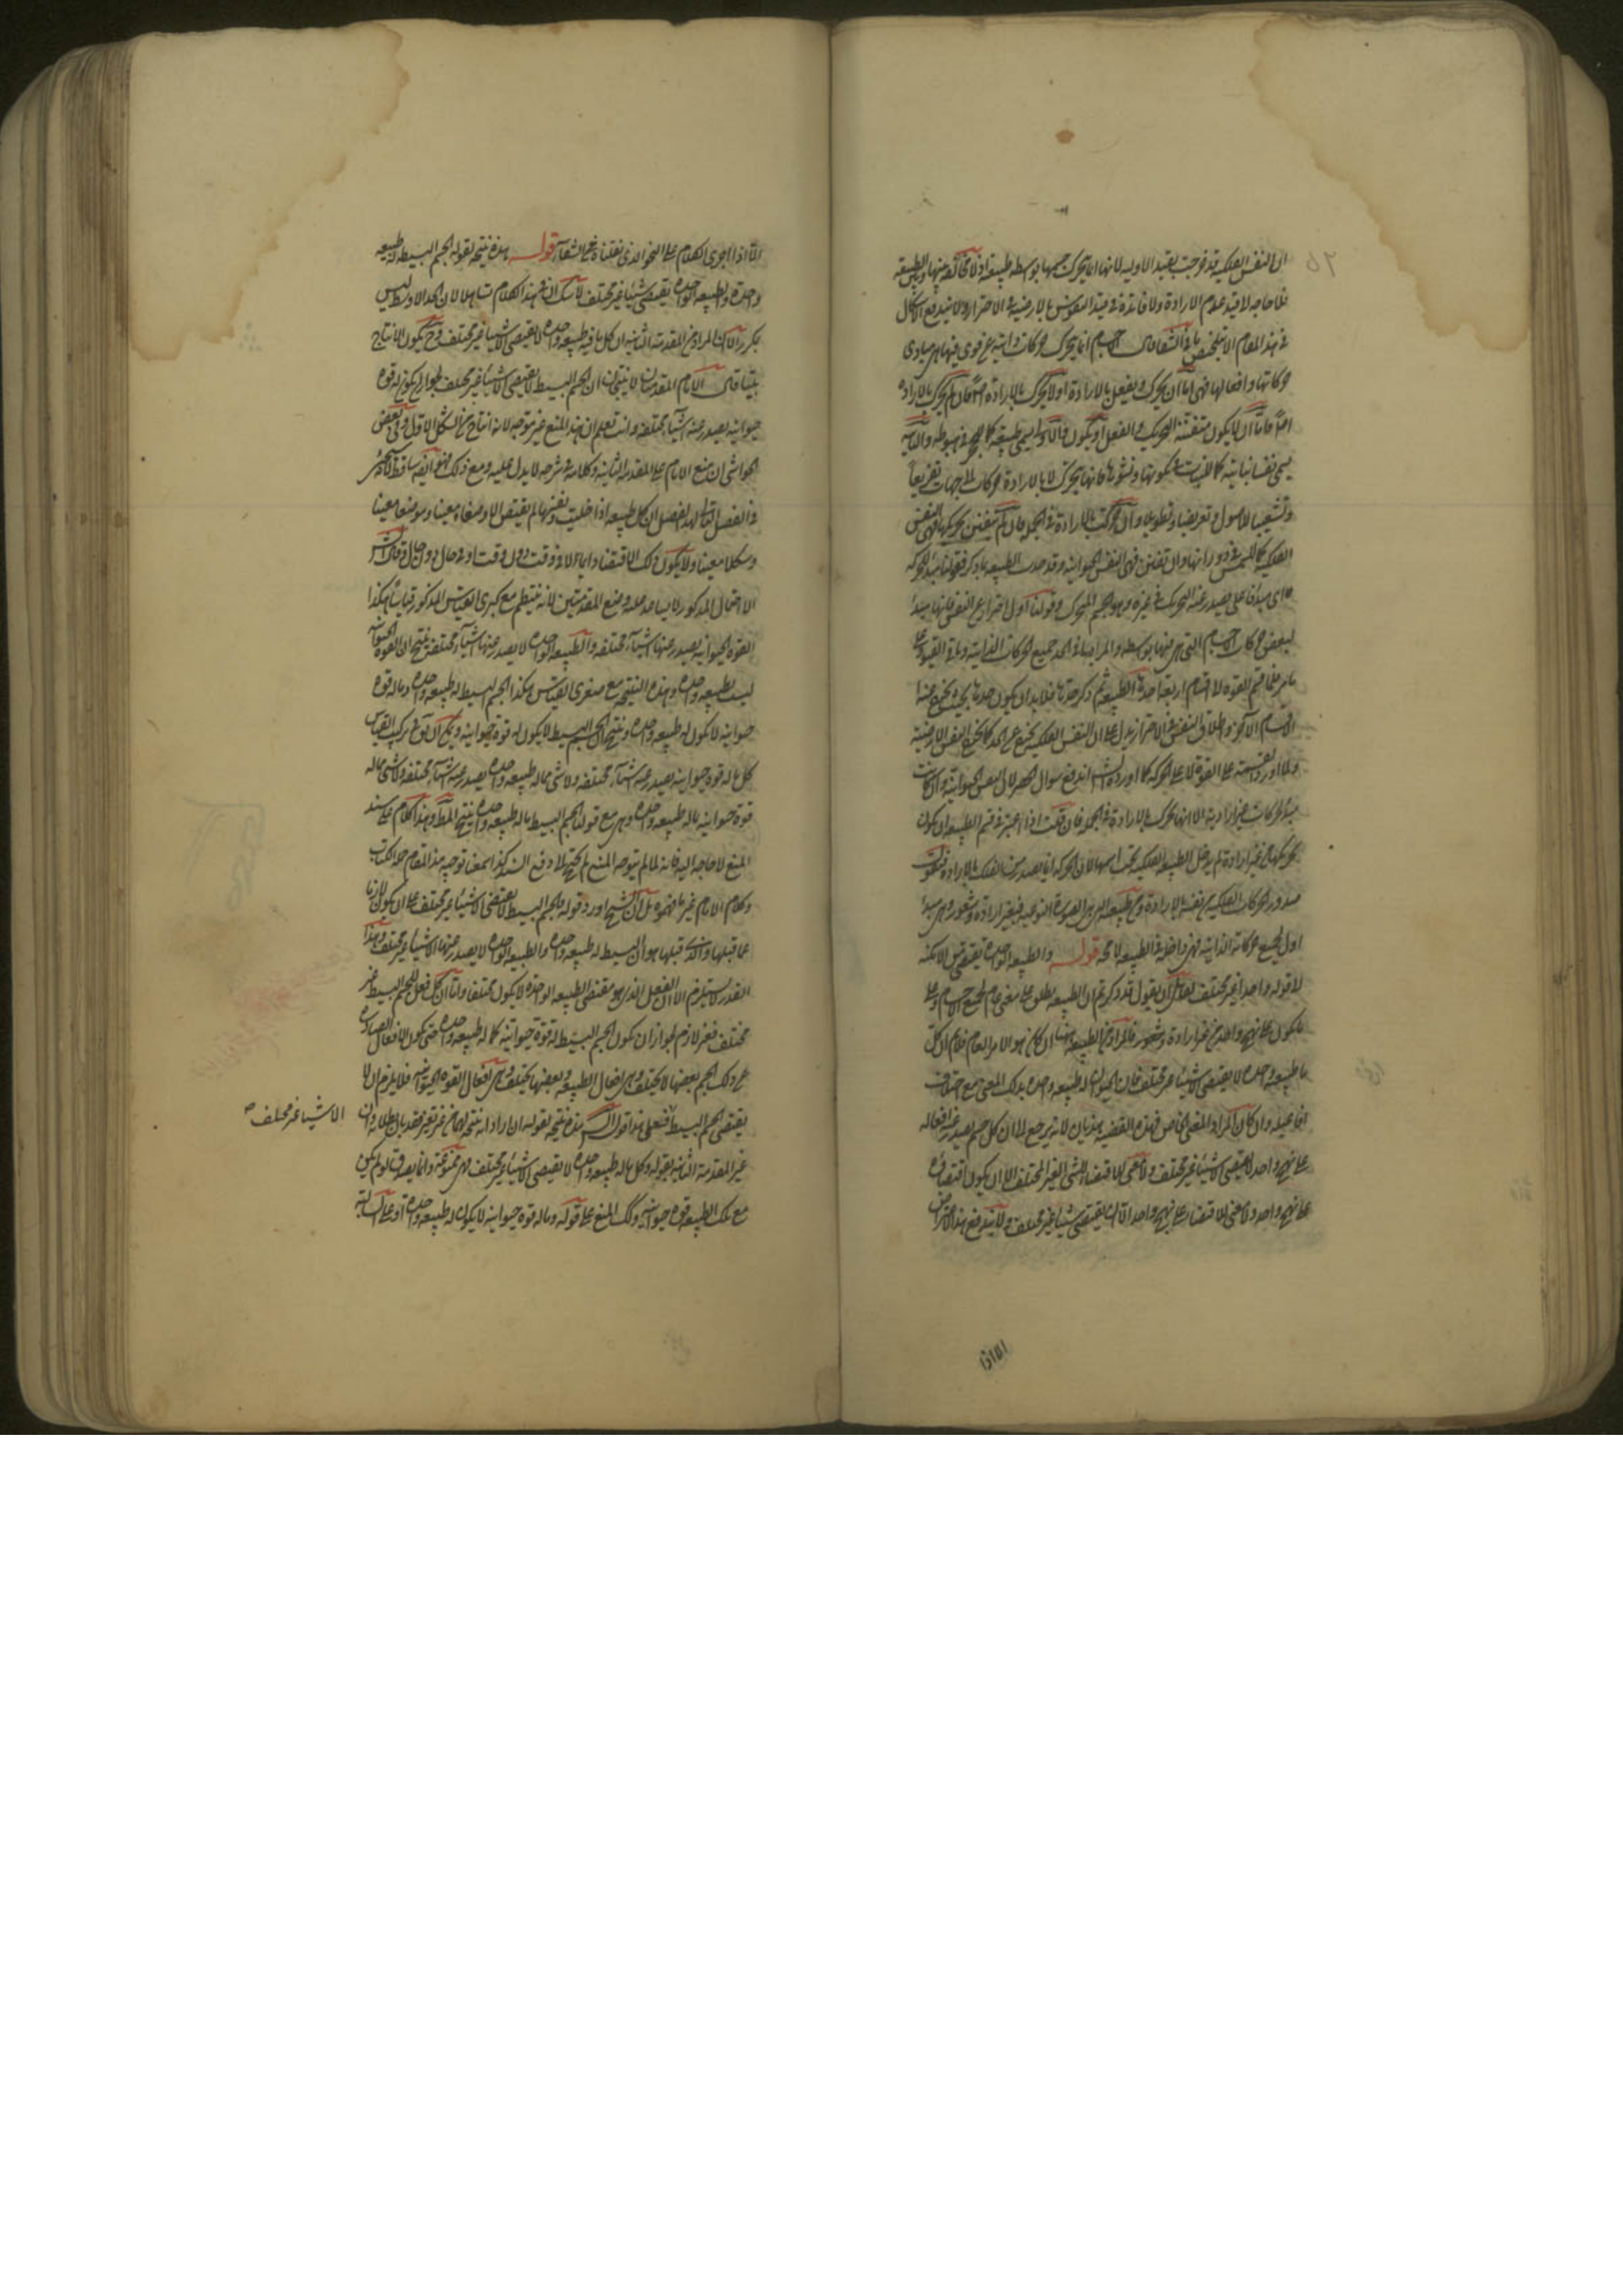 ان النفس الفلكية قد خرجت بقيد الاولية لانها انما يتحرك جسمها بوسطه طبيعة
فلا حاجة لا قيد عدم الارادة ولا فائدة في قيد النفوس بالارضية في الاحتراز ولا يندفع الاشكال
في هذا المقام الا بتلخيص ما في الشفا قال الاجسام انما يتحرك حركات ذاتية عن قوى فيها هي مبادى
حركاتها وافعالها فهى اما ان يحرك ويفعل بالارادة او لا يحرك بالارادة
اما ان لا يكون متفننة التحريك والفعل او يكون والاول يسمى طبيعة كما للحجر في هبوطه والثانية
يسمى نفسا نباتية كما للنبات في تكونها ونشوها فانها يتحرك لا بالارادة حركات الى جهات تفريعا
وتشعيبا للاصول وتعريضا وتطويلا وان حركت بالارادة في الجملة فان لم يتفنن تحريكها فهى النفس
الفلكية كما للشمس في دورانها وان تفنن فهى النفس الحيوانية وقد حدت الطبيعة بما ذكر فقولنا مبدأ للحركة
اى مبدأ فاعلى يصدر عنه التحريك في غيره وهو الجسم المتحرك وقولنا اول احتراز عن النفس فانها مبدأ
لبعض حركات الاجسام التى هى فيها بوسطه والمراد بما في الحد جميع الحركات الذاتية
الاقسام الاخر واطلاق النفس في الاحتراز يدل على ان النفس الفلكية يخرج عن الحد كما يخرج النفس الارضية
مبدأ لحركات غير ارادية الا انها تحرك بالارادة في الجملة فان قلت اذا اعتبر في قسم الطبيعة ان يكون
تحريكها من غير ارادة لم يدخل الطبيعة الفلكية تحت اسمها لان الحركة انما يصدر من الفلك بالارادة فنقول
صدور الحركات الفلكية من نفسه بالارادة ومن طبيعة التى هى الصورة النوعية فبغير ارادة وشعور وهى مبدأ
اول لجميع حركاته الذاتية فهى داخلة في الطبيعة لا محة قوله والطبيعة الواحدة تقتضى من الامكنة
لا قوله واحدا غير مختلف لقائل ان يقول قد ذكرتم ان الطبيعة يطلق على معنى عام لجميع الاجسام وعلى
ما يكون على نهج واحد من غير ارادة وشعور فالمراد من الطبيعة ههنا ان كان هو الامر العام فلا نم ان كل
ما طبيعة واحدة لا يقتضى الا شيئا غير مختلف فان الحيوان له طبيعة واحدة بذلك المعنى مع اختلاف
افاعيله وان كان المراد المعنى الخاص فهذه القضية هذيان لانه يرجع الى ان كل جسم يصدر عنه افعاله
على نهج واحد لا يقتضى الا شيئا غير مختلف ولا معنى لاقتضاء الشئ الغير المختلف الا ان يكون اقتضاؤه
على نهج واحد ولا معنى للاقتضاء على نهج واحد الا انه يقتضى شيئا غير مختلف ولا يندفع هذا الاعتراض
الا اذا
الا اذا اجرى الكلام على النحو الذى نقلناه عن الشفاء قوله هذه نتيجة لقوله الجسم البسيط له طبيعة
واحدة والطبيعة الواحدة يقتضى شيئا غير مختلف لا شك ان في هذا الكلام تساهلا لان الحد الاوسط ليس
بمكرر الا ان المراد من المقدمة الثانية ان كل ما فيه طبيعة واحدة لا يقتضى الا شيئا غير مختلف وح يكون الانتاج
بينا قال الامام المقدمتان لا ينتجان ان الجسم البسيط لا يقتضى الا شيئا غير مختلف لجواز ان يكون له قوة
حيوانية يصدر عنه اشياء مختلفة وانت تعلم ان هذا المنع غير موجه لانه انتاج من الشكل الاول وفى بعض
الحواشى ان منع الامام على المقدمة الثانية وكلامه في شرحه لا يدل عليه ومع ذلك فهو ايضا ساقط
في الفصل التالى لهذا الفصل ان كل طبيعة اذا خليت ونفسها لم يقتض الا وضعا معينا وموضعا معينا
وشكلا معينا ولا يكون ذلك الاقتضاء واياه الا في وقت دون وقت او في حال دون حال
الاحتمال المذكور لا يساعد عليه وضع المقدمتين لانه ينتظم مع كبرى القياس المذكور قياسا هكذا
القوة الحيوانية يصدر عنها اشياء مختلفة والطبيعة الواحدة لا يصدر عنها اشياء مختلفة ينتج ان القوة الحيوانية
ليست بطبيعة واحدة وهذه النتيجة مع صغرى القياس هكذا الجسم البسيط له طبيعة واحدة وماله قوة
حيوانية لا يكون له طبيعة واحدة ينتج ان الجسم البسيط لا يكون له قوة حيوانية ويمكن ان يقع تركيب القياس
كل ماله قوة حيوانية يصدر عنه اشياء مختلفة ولا شئ مما له طبيعة واحدة يصدر عنه اشياء مختلفة ولا شئ مما له
قوة حيوانية ماله طبيعة واحدة وهى مع قولنا الجسم البسيط ماله طبيعة واحدة ينتج المط وهذا الكلام على سند
المنع لا حاجة اليه فانه لما لم يتوجه المنع لم يحتج الى دفع السند
وكلام الامام غير ما فهموه بل ان الشيخ اورد قوله والجسم البسيط لا يقتضى الا شيئا غير مختلف على ان يكون لازما
عما قبلها والذى قبلها هو ان البسيط له طبيعة واحدة والطبيعة الواحدة لا يصدر عنها الا شيئا غير مختلف وهذا
القدر لا يستلزم الا ان الفعل الذى هو مقتضى الطبيعة الواحدة لا يكون مختلفا واما ان كل فعل للجسم البسيط غير
مختلف فغير لازم لجواز ان يكون الجسم البسيط له قوة حيوانية كما له طبيعة واحدة حتى يكون الافعال الصادرة
عن ذلك الجسم بعضها لا يختلف وهى افعال الطبيعة وبعضها يختلف وهى افعال القوة الحيوانية فلا يلزم ان لا
يقتضى الجسم البسيط فعلى هذا قول الشيخ هذه نتيجة لقوله ان اراد انه نتيجة لهما من غير تغيير فقد بان بطلانه وان
الا شيئا غير مختلف صح
غير المقدمة الثانية بقوله وكل ماله طبيعة واحدة لا يقتضى الا شيئا غير مختلف فهى ممنوعة وانما يصدق لو لم يكن
مع تلك الطبيعة قوة حيوانية وكك المنع على قوله وماله قوة حيوانية لا يكون له طبيعة واحدة